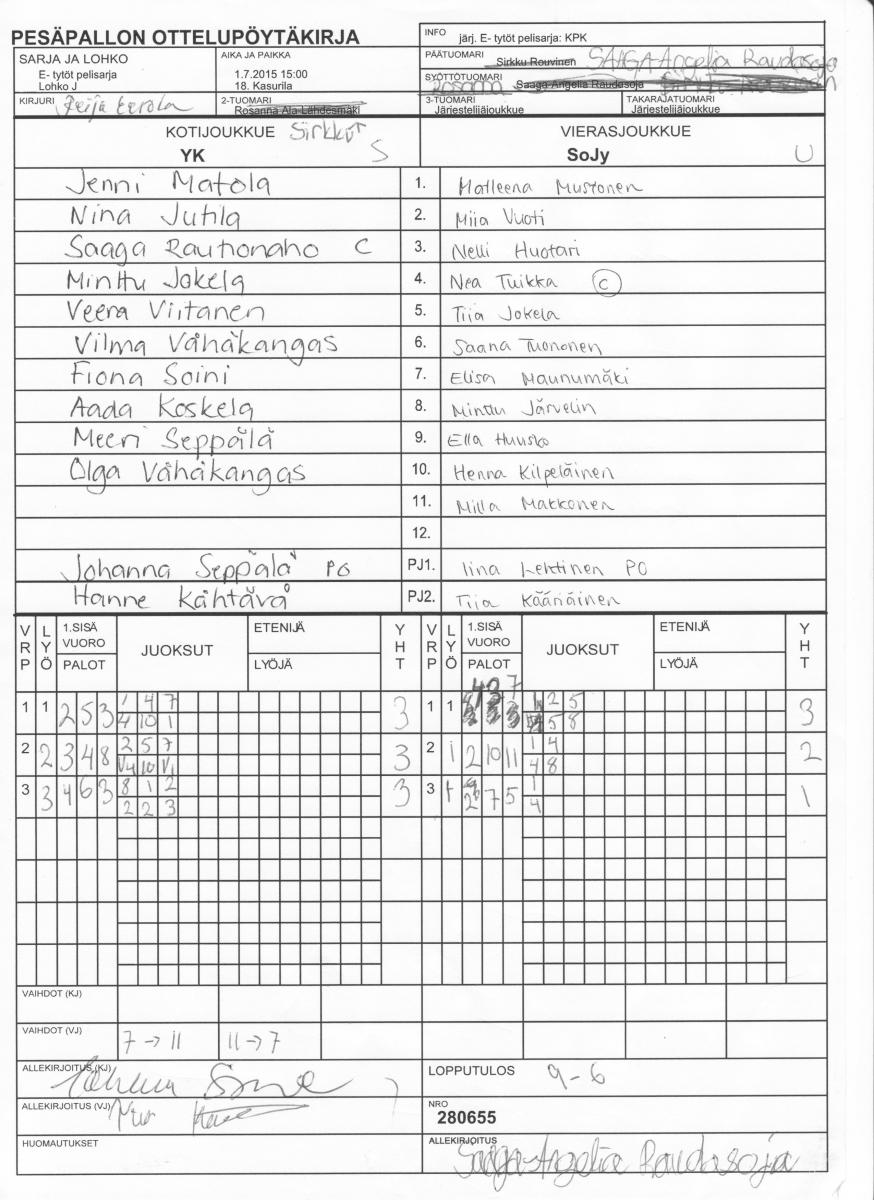 PESÄPALLON OTTELUPÖYTÄKIRJA
INFO järj. E- tytöt pelisarja: KPK
SARJA JA LOHKO
E- tytöt pelisarja
Lohko J
AIKA JA PAIKKA
1.7.2015 15:00
18. Kasurila
PÄÄTUOMARI Sirkku Rouvinen SAAGA-Angelia Raudasoja
SYÖTTÖTUOMARI Rosanna Saaga-Angelia Raudasoja
KIRJURI Reija Eerola
2-TUOMARI
Rosanna Ala-Lahdesmäki
3-TUOMARI
Järjestelijäjoukkue
TAKARAJATUOMARI
Järjestelijäjoukkue
KOTIJOUKKUE Sirkkut
YK S
VIERASJOUKKUE
SoJy U
Jenni Matola 1. Matleena Mustonen
Nina Jutila 2. Miia Vuoti
Saaga Rautionaho C 3. Nelli Huotari
Minttu Jokela 4. Nea Tuikka C
Veera Viitanen 5. Tiia Jokela
Vilma Vähäkangas 6. Saana Tuononen
Fiona Soini 7. Elisa Maunumäki
Aada Koskela 8. Minttu Järvelin
Meeri Seppälä 9. Ella Huusko
Olga Vähäkangas 10. Henna Kilpeläinen
11. Milla Makkonen
12.
Johanna Seppälä PG PJ1. Iina Lehtinen PG
Hanne Kähtävä PJ2. Tiia Kääriäinen
VRP LYÖ 1.SISÄ VUORO PALOT JUOKSUT ETENIJÄ LYÖJÄ YHT VRP LYÖ 1.SISÄ VUORO PALOT JUOKSUT ETENIJÄ LYÖJÄ YHT
1 1 2 5 3 1 4 7 3 1 1 4 3 7 1 2 5 3
4 10 1 5 8
2 2 3 4 8 2 5 7 3 2 1 2 10 11 1 4 2
V4 10 V1 4 8
3 3 4 6 3 8 1 2 3 3 1 7 5 1 1
2 2 3 4
VAIHDOT (KJ)
VAIHDOT (VJ) 7 → 11 11 → 7
ALLEKIRJOITUS (KJ)
LOPPUTULOS 9-6
ALLEKIRJOITUS (VJ)
NRO
280655
HUOMAUTUKSET
ALLEKIRJOITUS Saaga-Angelia Raudasoja